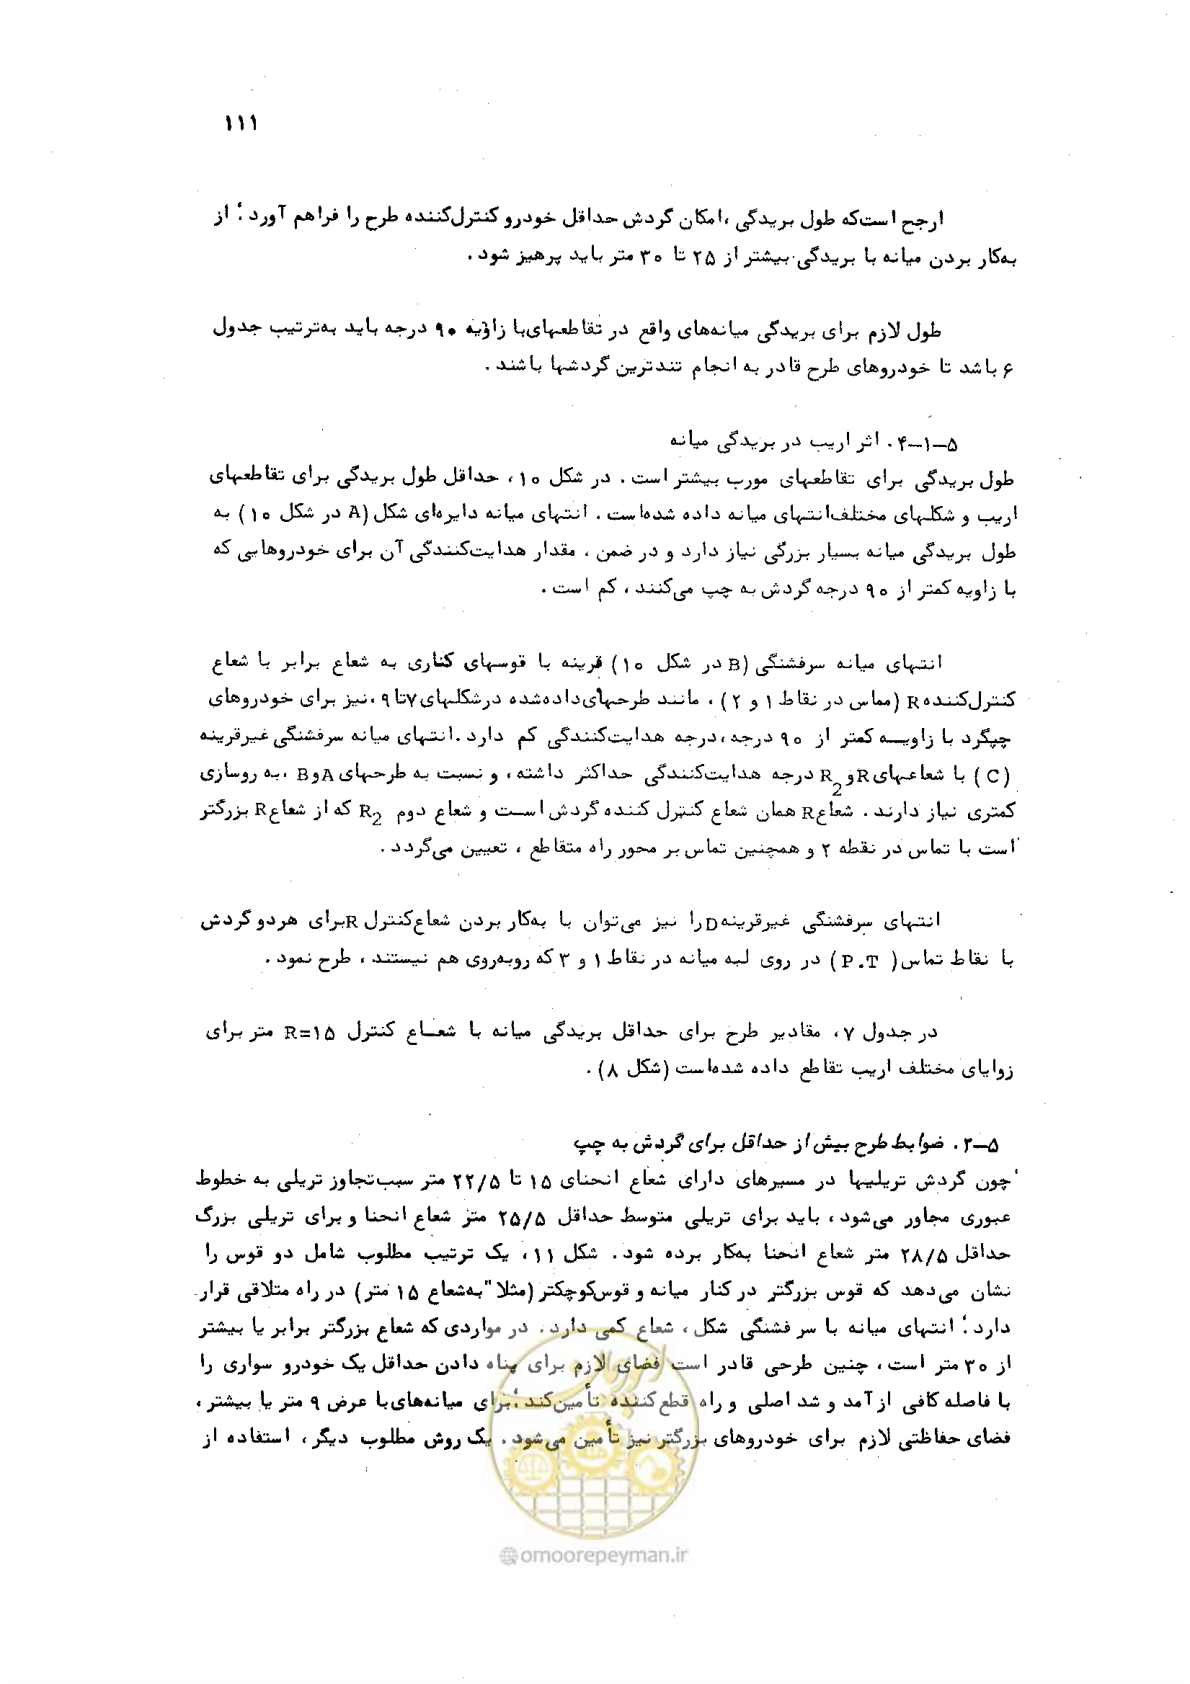 ۱۱۱
ارجح است‌که طول بریدگی ،امکان گردش حداقل خودرو کنترل‌کننده طرح را فراهم آورد ؛ از
به‌کار بردن میانه با بریدگی بیشتر از ۲۵ تا ۳۰ متر باید پرهیز شود .
طول لازم برای بریدگی میانه‌های واقع در تقاطعهای‌با زاویه ۹۰ درجه باید به‌ترتیب جدول
۶ باشد تا خودروهای طرح قادر به انجام تندترین گردشها باشند .
۵-۱-۴ . اثر اریب در بریدگی میانه
طول بریدگی برای تقاطعهای مورب بیشتر است . در شکل ۱۰ ، حداقل طول بریدگی برای تقاطعهای
اریب و شکلهای مختلف‌انتهای میانه داده شده‌است . انتهای میانه دایره‌ای شکل (A در شکل ۱۰) به
طول بریدگی میانه بسیار بزرگی نیاز دارد و در ضمن ، مقدار هدایت‌کنندگی آن برای خودروهایی که
با زاویه کمتر از ۹۰ درجه گردش به چپ می‌کنند ، کم است .
انتهای میانه سرفشنگی (B در شکل ۱۰) قرینه با قوسهای کناری به شعاع برابر با شعاع
کنترل‌کننده R (مماس در نقاط ۱ و ۲) ، مانند طرحهای‌داده‌شده درشکلهای ۷تا ۹ ،نیز برای خودروهای
چپگرد با زاویه کمتر از ۹۰ درجه ،درجه هدایت‌کنندگی کم دارد .انتهای میانه سرفشنگی غیرقرینه
(C) با شعاعهای R و R2 درجه هدایت‌کنندگی حداکثر داشته ، و نسبت به طرحهای A و B ،به روسازی
کمتری نیاز دارند . شعاع R همان شعاع کنترل کننده گردش است و شعاع دوم R2 که از شعاع R بزرگتر
است با تماس در نقطه ۲ و همچنین تماس بر محور راه متقاطع ، تعیین می‌گردد .
انتهای سرفشنگی غیرقرینه D را نیز می‌توان با به‌کار بردن شعاع‌کنترل R برای هردو گردش
با نقاط تماس (P.T) در روی لبه میانه در نقاط ۱ و ۳ که روبه‌روی هم نیستند ، طرح نمود .
در جدول ۷ ، مقادیر طرح برای حداقل بریدگی میانه با شعاع کنترل R=۱۵ متر برای
زوایای مختلف اریب تقاطع داده شده‌است (شکل ۸) .
۵-۲ . ضوابط طرح بیش از حداقل برای گردش به چپ
چون گردش تریلیها در مسیرهای دارای شعاع انحنای ۱۵ تا ۲۲/۵ متر سبب‌تجاوز تریلی به خطوط
عبوری مجاور می‌شود ، باید برای تریلی متوسط حداقل ۲۵/۵ متر شعاع انحنا و برای تریلی بزرگ
حداقل ۲۸/۵ متر شعاع انحنا به‌کار برده شود . شکل ۱۱ ، یک ترتیب مطلوب شامل دو قوس را
نشان می‌دهد که قوس بزرگتر در کنار میانه و قوس‌کوچکتر (مثلا" به‌شعاع ۱۵ متر) در راه متلاقی قرار
دارد ؛ انتهای میانه با سر فشنگی شکل ، شعاع کمی دارد . در مواردی که شعاع بزرگتر برابر یا بیشتر
از ۳۰ متر است ، چنین طرحی قادر است فضای لازم برای پناه دادن حداقل یک خودرو سواری را
با فاصله کافی از آمد و شد اصلی و راه قطع‌کننده تأمین‌کند ؛برای میانه‌های‌با عرض ۹ متر یا بیشتر ،
فضای حفاظتی لازم برای خودروهای بزرگتر نیز تأمین می‌شود . یک روش مطلوب دیگر ، استفاده از
omoorepeyman.ir